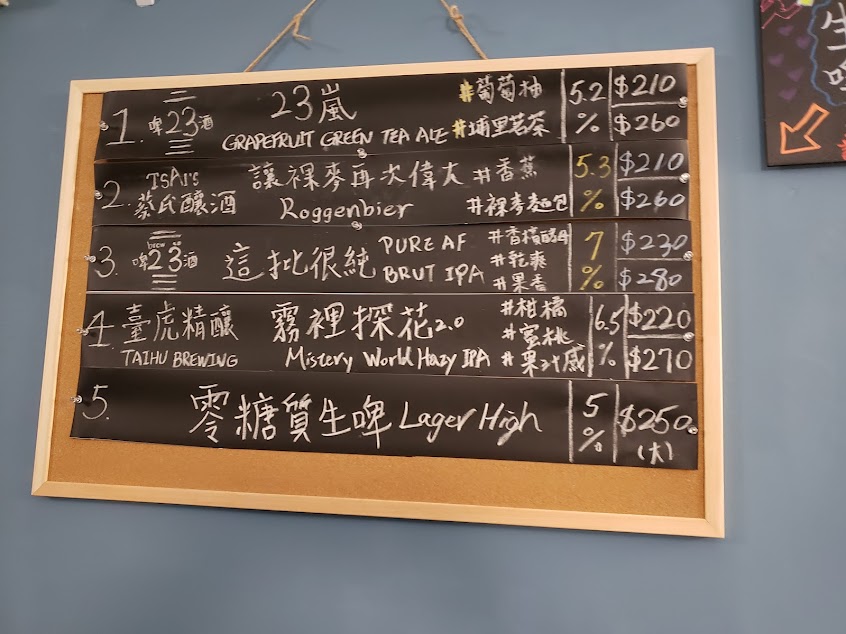 1. 啤23酒 23嵐 #葡萄柚 5.2 $210
GRAPEFRUIT GREEN TEA ALE #埔里茗茶 % $260
2. TSAI's 讓裸麥再次偉大 #香蕉 5.3 $210
蔡氏釀酒 Roggenbier #裸麥麵包 % $260
3. brew 啤23酒 這批很純 PURE AF #香檳酵母 7 $230
BRUT IPA #乾爽 % $280
#果香
4. 臺虎精釀 霧裡探花2.0 #柑橘 6.5 $220
TAIHU BREWING Mistery World Hazy IPA #蜜桃 % $270
#果汁感
5. 零糖質生啤 Lager High 5 $250
% (大)
生
啤